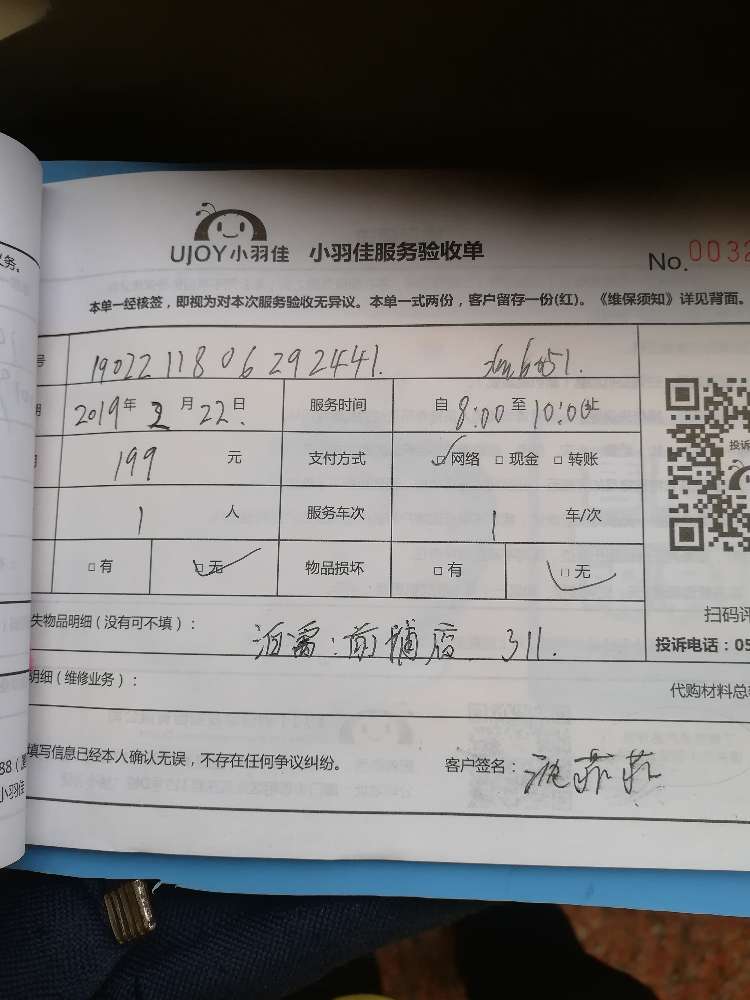 义务。
UJOY小羽佳 小羽佳服务验收单
No.0032
本单一经核签，即视为对本次服务验收无异议。本单一式两份，客户留存一份(红)。《维保须知》详见背面。
号 1902211806292441.
2019年 2月22日 服务时间 自8:00至10:00止
199 元 支付方式 ☑网络 □现金 □转账
1 人 服务车次 1 车/次
□有 ☑无 物品损坏 □有 ☑无
投诉
扫码评
失物品明细（没有可不填）： 前埔店 311.
投诉电话：05
明细（维修业务）：
代购材料总
填写信息已经本人确认无误，不存在任何争议纠纷。 客户签名： 菲菲
88（
小羽佳